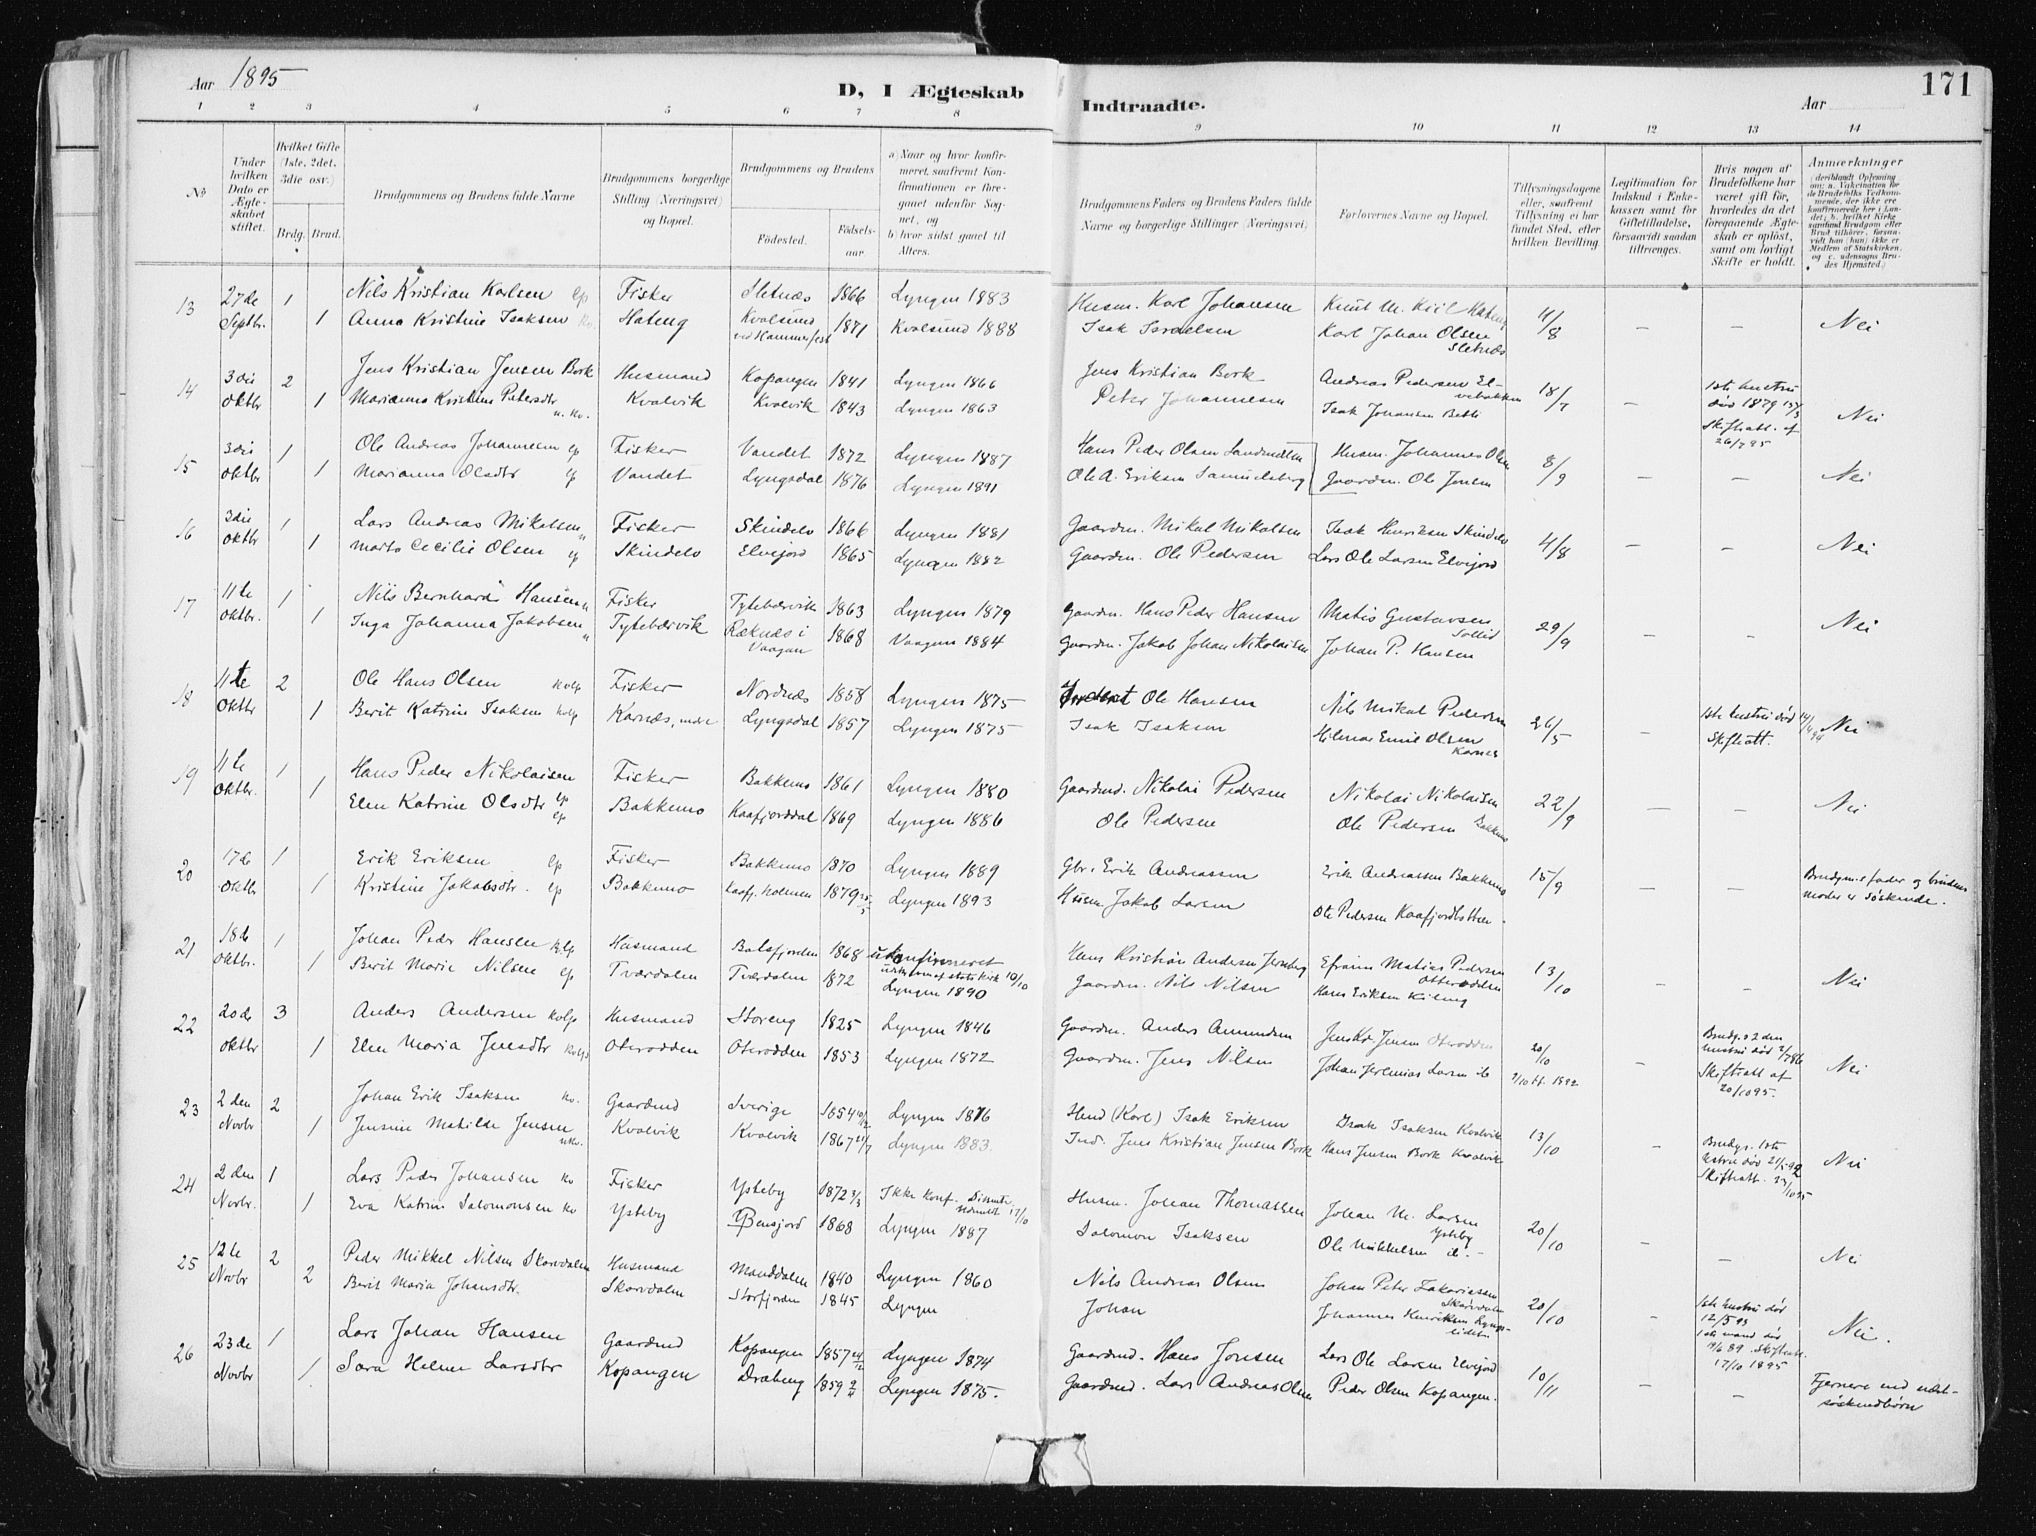 Aar 1895
D, I Ægteskab
Indtraadte.
171
Aar
1 2 3 4 5 6 7 8 9 10 11 12 13 14
No
Under hvilken Dato er Ægteskabet stiftet.
Hvilket Gifte (1ste, 2det, 3die osv.)
Brdg. Brud.
Brudgommens og Brudens fulde Navne
Brudgommens borgerlige Stilling (Næringsvei) og Bopæl.
Brudgommens og Brudens
Fødested. Fødselsaar.
a) Naar og hvor konfirmeret, saafremt Konfirmationen er foregaaet udenfor Sognet, og
b) hvor sidst gaaet til Alters.
Brudgommens Faders og Brudens Faders fulde Navne og borgerlige Stillinger (Næringsvei)
Forlovernes Navne og Bopæl.
Tillysningsdagene eller, saafremt Tillysning ei har fundet Sted, efter hvilken Bevilling.
Legitimation for Indskud i Enkekassen samt for Giftetilladelse, forsaavidt saadan tiltrænges.
Hvis nogen af Brudefolkene har været gift før, hvorledes da det foregaaende Ægteskab er opløst, samt om lovligt Skifte er holdt.
Anmærkninger
13 27de 1 Nils Kristian Karlsen Fisker Sletnæs 1866 Lyngen 1883 Husm. Karl Johansen Knut M. Kiil Hateng 11/8 — — Nei
Septbr. 1 Anna Kristine Isaksen Hateng Kvalsund ved Hammerfest 1871 Kvalsund 1888 Isak Israelsen Karl Johan Olsen Sletnæs
14 3die 2 Jens Kristian Jensen Bork Husmand Kopangen 1841 Lyngen 1866 Jens Kristian Bork Andreas Pedersen Elvebakken 18/7 — 1ste hustru død 1879 Nei
Oktbr 1 Marianna Kristine Petersdtr u. kv. Kvalvik Kvalvik 1843 Lyngen 1863 Peter Johannesen Isak Johansen Skifteatt. af 26/7 95
15 3die 1 Ole Andreas Johannesen lp Fisker Vandet 1872 Lyngen 1887 Hans Peder Olsen Husm. Johannes Olsen 8/9 — — Nei
Oktbr 1 Marianna Olsdtr lp Vandet Lyngsdal 1876 Lyngen 1891 Ole A. Eriksen Samuelsberg Gaardm. Ole Jensen
16 3die 1 Lars Andreas Mikelsen Fisker Skindelv 1866 Lyngen 1881 Gaardm. Mikal Mikalsen Isak Henriksen Skindelv 4/8 — — Nei
Oktbr 1 Marta Cecilie Olsen lp Skindelv Elvejord 1865 Lyngen 1882 Gaardm. Ole Pedersen Lars Ole Larsen Elvejord
17 11te 1 Nils Bernhard Hansen Fisker Tytebærvik 1863 Lyngen 1879 Gaardm. Hans Peder Hansen Matis Gustavsen Sollid 29/9 — — Nei
Oktbr. 1 Inga Johanna Jakobsen Tytebærvik Ræknæs i Vaagan 1868 Vaagan 1884 Gaardm. Jakob Johan Nikolaisen Johan P. Hansen
18 11te 2 Ole Hans Olsen kvlp Fisker Nordnæs 1858 Lyngen 1875 Ole Hansen Nils Mikal Pedersen 26/5 — 1ste hustru død Nei
Oktbr 1 Berit Katrine Isaksen kvlp Karnæs, indre Lyngsdal 1857 Lyngen 1875 Isak Isaksen Hilmar Emil Olsen Karnes Skifteatt.
19 11te 1 Hans Peder Nikolaisen lp Fisker Bakkemo 1861 Lyngen 1880 Gaardmd. Nikolai Pedersen Nikolai Nikolaisen 22/9 — — Nei
Oktbr. 1 Elen Katrine Olsdtr lp Bakkemo Kaafjorddal 1869 Lyngen 1886 Ole Pedersen Ole Pedersen Bakkemo
20 17de 1 Erik Eriksen lp Fisker Bakkemo 1870 Lyngen 1889 Gbr. Erik Andreassen Erik Andreassen Bakkemo 15/9 — — Brudgm.s fader og brudens moder er søskende.
Oktbr 1 Kristine Jakobsdtr. lp Bakkemo Kaafj. Holmen 1879 Lyngen 1893 Husm. Jakob Larsen Ole Pedersen Kaafjordbotten
21 18de 1 Johan Peder Hansen kvlp Husmand Balsfjorden 1868 ukonfirmeret Hans Kristian Andersen Efraim Matias Pedersen Otterodden 13/10 — — Nei
Oktbr. 1 Berit Marie Nilsen lp Tværdalen Tværdalen 1872 Lyngen 1890 Gaardm. Nils Nilsen Hans Eriksen Kileng
22 20de 3 Anders Andersen kvlp Husmand Storeng 1825 Lyngen 1846 Gaardm. Anders Amundsen Jens Kr. Jensen Oterodden 20/10 Brudg.s 2den hustru død Nei
Oktbr 1 Elen Maria Jensdtr kvlp Oterodden Oterodden 1853 Lyngen 1872 Gaardm. Jens Nilsen Johan Jeremias Larsen ib Skifteatt af 20/10 95.
23 2den 2 Johan Erik Isaksen kv. Gaardmd Sverige 1854 Lyngen 1876 Hmd (Karl) Isak Eriksen Isak Isaksen Kvalvik 13/10 — Brudg. 1ste Nei
Novbr 1 Jensine Matilde Jensen Kvalvik Kvalvik 1867 Lyngen 1883. Ind. Jens Kristian Jensen Bork Hans Jensen Bork Kvalvik Skifteatt.
24 2den 1 Lars Peder Johansen kv Fisker Ysteby 1872 Ikke konf. Husm. Johan Thomassen Johan M. Larsen Ysteby 20/10 — — Nei
Novbr. 1 Eva Katrine Salomonsen kv Ysteby Bensjord 1868 Lyngen 1887 Salomon Isaksen Ole Mikkelsen ib.
25 12te 2 Peder Mikkel Nilsen Skardalen Husmand Manddalen 1840 Lyngen 1860 Nils Andreas Olsen Johan Peter Zakariassen Skardalen 20/10 — 1ste hustru død 12/5 93 Nei.
Novbr 2 Berit Maria Johansdtr. Skardalen Storfjorden 1845 Lyngen Johan Johannes Henriksen Lyngseidet 1ste mand død Skifteatt. 17/10 1895
26 23de 1 Lars Johan Hansen Gaardmd Kopangen 1857 Lyngen 1874 Gaardmd. Hans Jensen Lars Ole Larsen Elvejord 10/11 — — Fjernere end næstsøskendbørn
Novbr 1 Sara Helene Larsdtr Kopangen Dræbeng 1859 Lyngen 1875. Gaardmd. Lars Andreas Olsen Peder Olsen Kopangen.